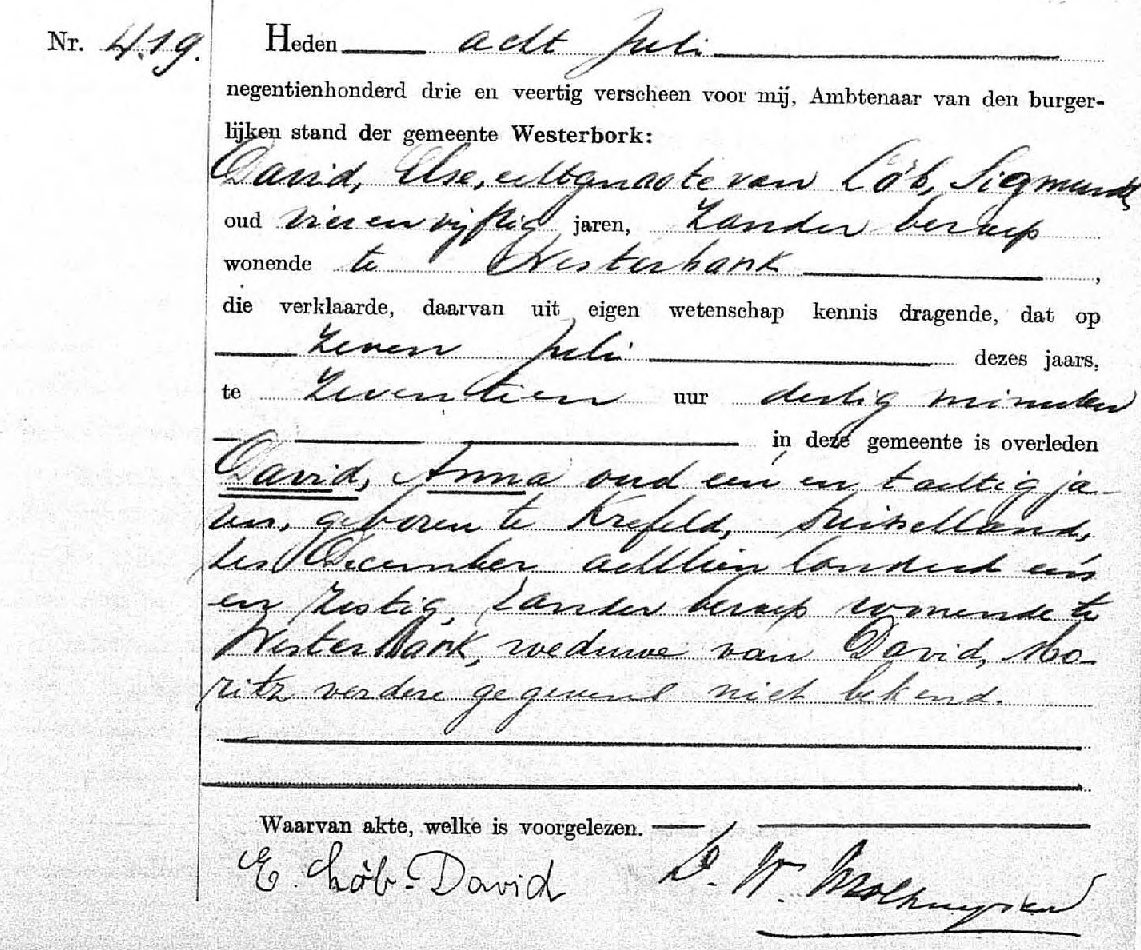 Nr. 419.
Heden acht Juli
negentienhonderd drie en veertig verscheen voor mij, Ambtenaar van den burger-
lijken stand der gemeente Westerbork:
David, Else, echtgenoote van Löb, Sigmund,
oud vier en vijftig jaren, zonder beroep
wonende te Westerbork,
die verklaarde, daarvan uit eigen wetenschap kennis dragende, dat op
zeven Juli dezes jaars,
te zeventien uur dertig minuten
in deze gemeente is overleden
David, Anna oud een en tachtig ja-
ren, geboren te Krefeld, Duitschland,
December achttien honderd een
en zestig, zonder beroep wonende te
Westerbork, weduwe van David, Mo-
ritz verdere gegevens niet bekend.
Waarvan akte, welke is voorgelezen.
E. Löb-David
W.